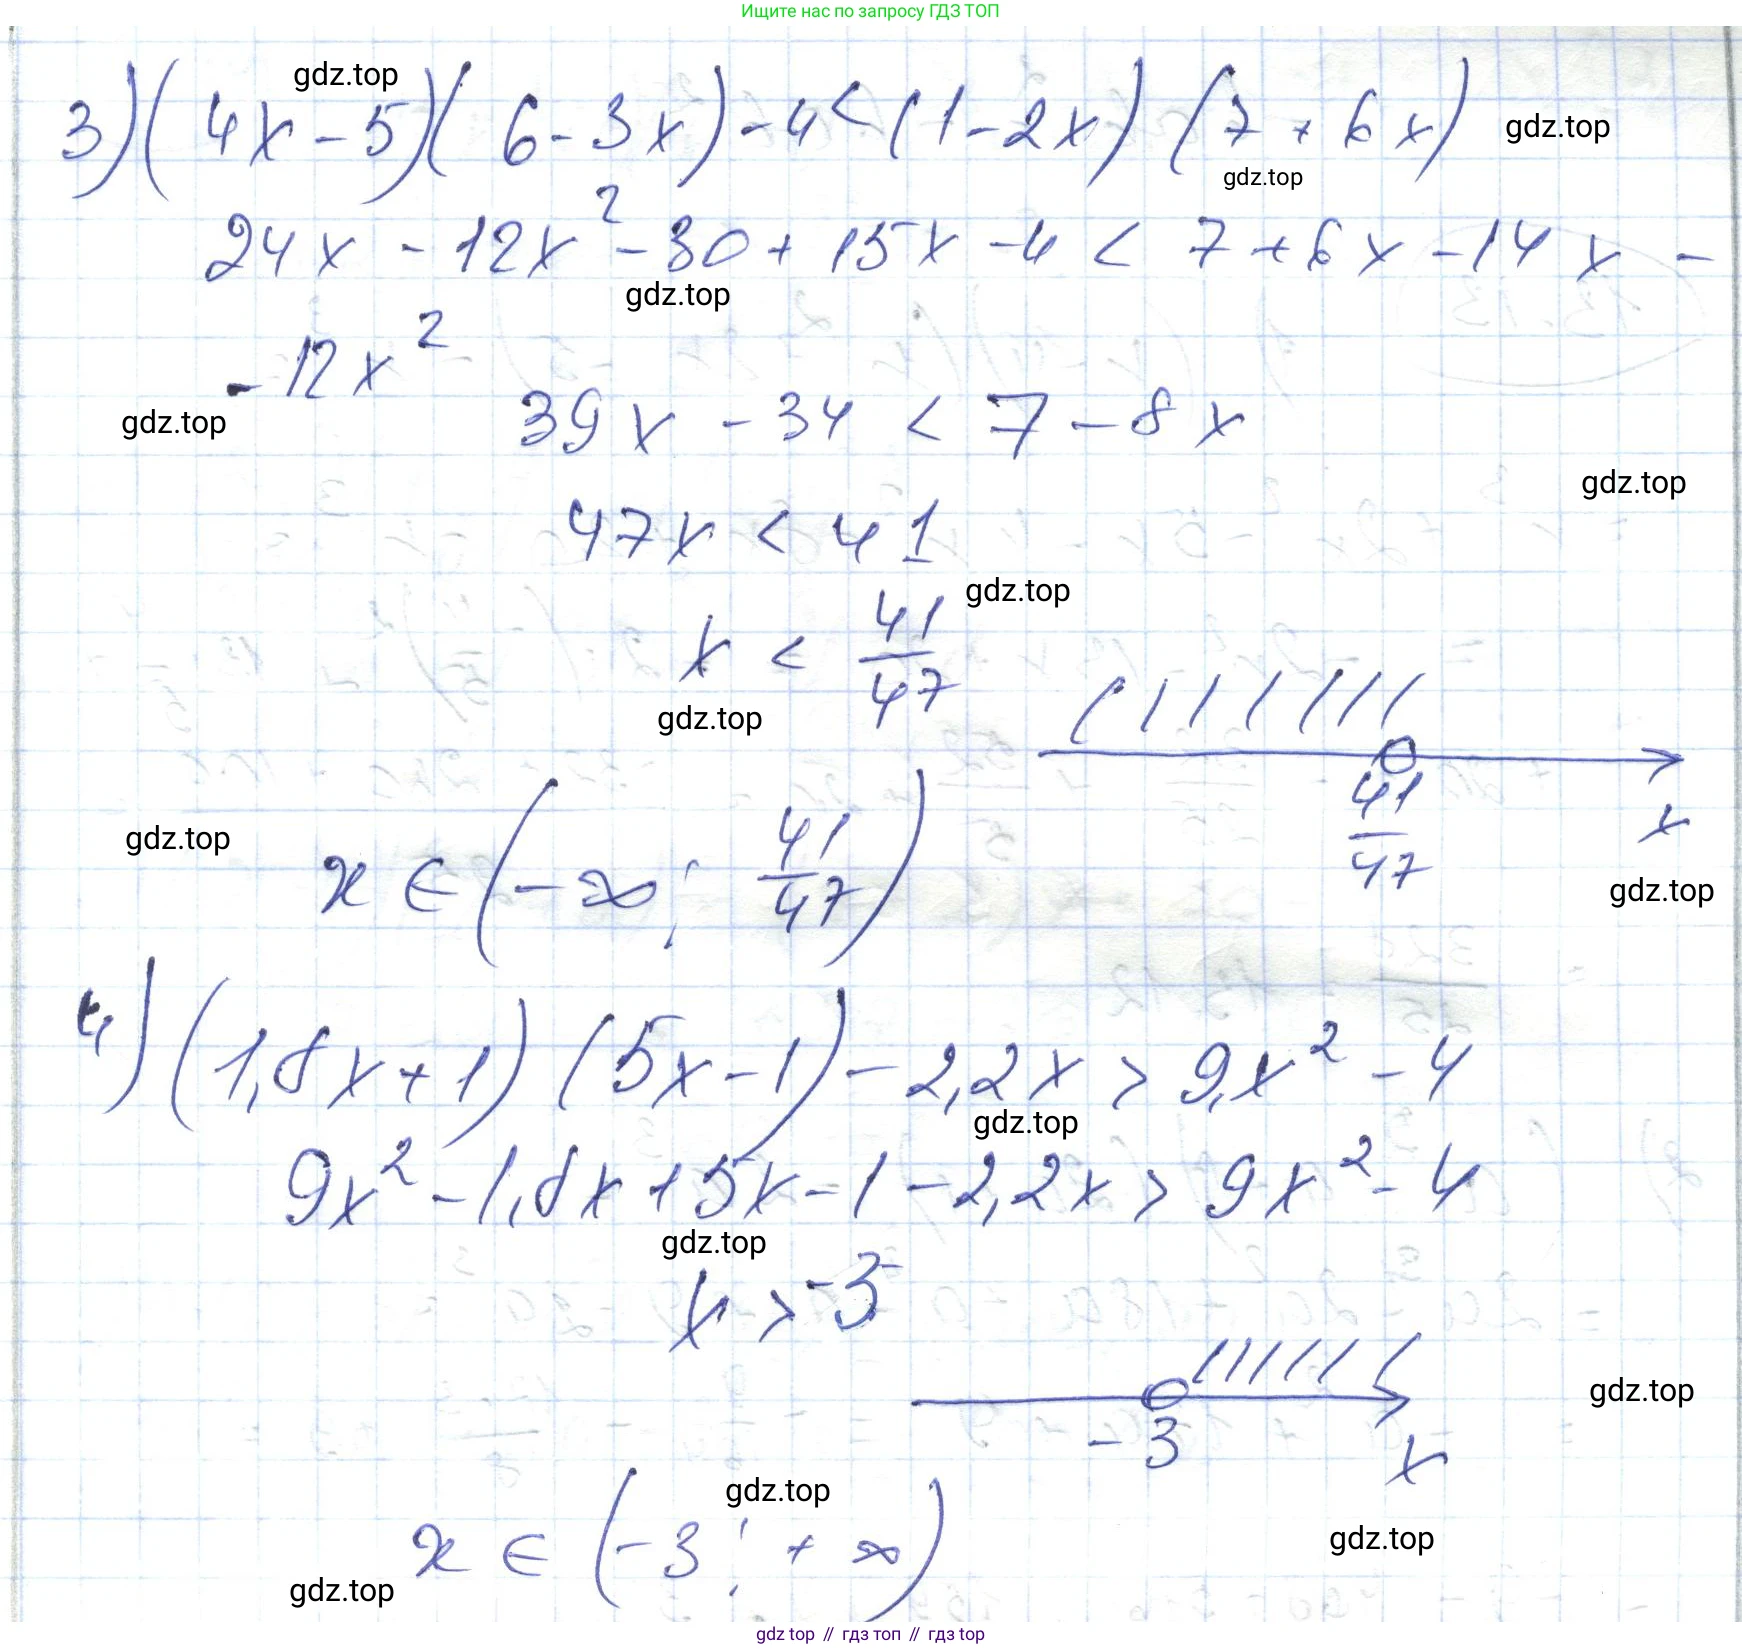 Ищите нас по запросу ГДЗ ТОП
gdz.top
3) (4x - 5)(6 - 3x) - 4 < (1 - 2x)(7 + 6x)
gdz.top
gdz.top
24x - 12x² - 30 + 15x - 4 < 7 + 6x - 14x -
gdz.top
- 12x²
gdz.top
39x - 34 < 7 - 8x
gdz.top
47x < 41
gdz.top
x < 41/47
gdz.top
41/47
x
gdz.top
x ∈ (-∞; 41/47)
gdz.top
4) (1,8x + 1)(5x - 1) - 2,2x > 9x² - 4
gdz.top
9x² - 1,8x + 5x - 1 - 2,2x > 9x² - 4
gdz.top
x > -3
gdz.top
-3
x
gdz.top
x ∈ (-3; +∞)
gdz.top
gdz.top
gdz top // гдз топ // гдз top